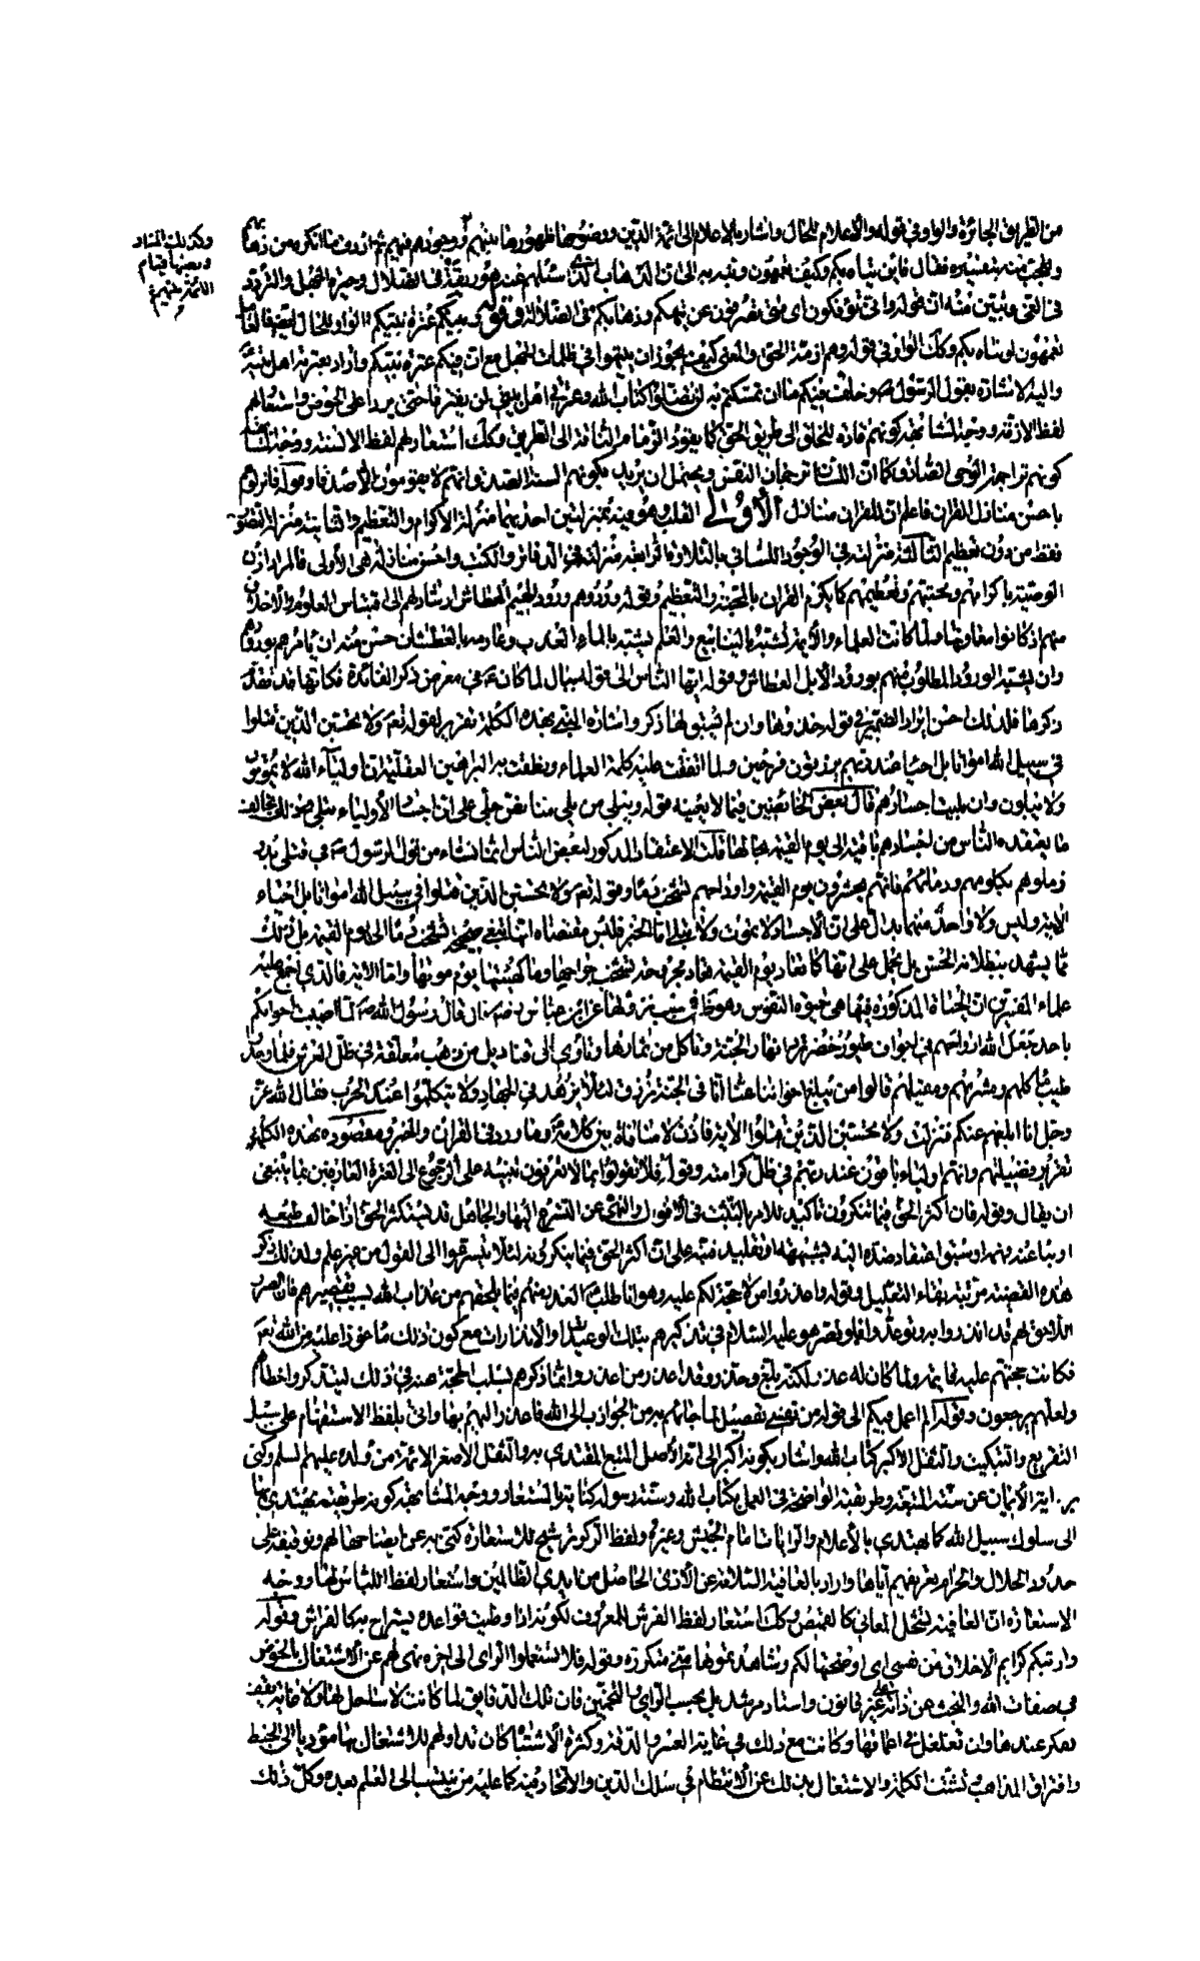 من الطريق الجائزة والواو في قوله والأعلام للحال وأشار بالأعلام إلى أئمة الدين ووضوحها ظهورها بينهم ووجودهم فيهم ثم أردف ما أنكره من ذهابهم
وكذلك المنار
ونصبها قيام
الأئمة بينهم
في الغي وتبين منه أن قوله وأنى تؤفكون أي متى تصرفون عن تيهكم وذهابكم في الضلالة وقوله وبينكم عترة نبيكم الواو للحال
تعمهون أو يتاه بكم وكذلك الواو في قوله وهم أزمة الحق والمعنى كيف يجوز أن يتيهوا في ظلمات الجهل مع أن فيكم عترة نبيكم وأراد بعترته أهل بيته
وإليه الإشارة بقول الرسول ص وخلفت فيكم ما إن تمسكتم به لن تضلوا كتاب الله وعترتي أهل بيتي لن يفترقا حتى يردا علي الحوض واستعار لهم
لفظ الأزمة ووجه المشابهة كونهم قادة للخلق إلى طريق الحق كما يقود الزمام الناقة إلى الطريق وكذلك استعار لهم لفظ الألسنة ووجه المشابهة
كونهم تراجمة الوحي الصادق كما أن اللسان ترجمان النفس ويحتمل أن يريد بكونهم ألسنة الصدق أنهم لا يقولون إلا صدقا وقوله فأنزلوهم
بأحسن منازل القرآن فاعلم أن للقرآن منازل الأولى القلب وهو فيه بمنزلتين إحديهما منزلة الإكرام والتعظيم والثانية منزلة التصور
فقط من دون تعظيم الثالثة منزلته في الوجود اللساني بالتلاوة الرابعة منزلته في الدفاتر والكتب وأحسن منازله هي الأولى فالمراد إذن
الوصية بإكرامهم ومحبتهم وتعظيمهم كما يكرم القرآن بالمحبة والتعظيم وقوله وردوهم ورود الهيم العطاش إرشاد لهم إلى اقتباس العلوم والأخلاق
منهم إذ كانوا معادنها ولما كانت العلماء والأئمة تشبه بالينابيع والعلم يشبه بالماء العذب وعادمه بالعطشان حسن منه أن يأمرهم بورودهم
وأن يشبه الورود المطلوب منهم بورود الإبل العطاش وقوله أيها الناس إلى قوله ببال لما كان في معرض ذكر الفائدة فكأنها قد تقدم
ذكرها فلذلك أحسن إيراد الضمير في قوله خذوها وإن لم يسبق لها ذكر وإشارة النبي بهذه الكلمة تقرير لقوله تعالى ولا تحسبن الذين قتلوا
في سبيل الله أمواتا بل أحياء عند ربهم يرزقون فرحين ولما اتفقت عليه كلمة العلماء ونطقت به البراهين العقلية أن أولياء الله لا يموتون
ولا يبلون وإن بليت أجسادهم قال بعض الخائضين فيما لا يعنيه قوله ويبلى من بلي منا نص جلي على أن أجساد الأولياء تبلى وذلك يخالف
ما يعتقده الناس من أجسادهم باقية إلى يوم القيامة بحالها قلت الاعتقاد المذكور لبعض الناس إنما نشأ من قول الرسول ص في قتلى بدر
زملوهم بكلومهم ودمائهم فإنهم يحشرون يوم القيامة وأوداجهم تشخب دما وقوله تعالى ولا تحسبن الذين قتلوا في سبيل الله أمواتا بل أحياء
الآية وليس ولا واحد منهما بدال على أن الأجساد لا تموت ولا تبلى أما الخبر فليس مقتضاه أنها تبقى صحيحة تشخب دما إلى يوم القيامة بل ذلك
مما يشهد ببطلانه الحس بل يحمل على أنها كما تعاد يوم القيامة تعاد مجروحة تشخب جراحها دما كهيئتها يوم موتها وأما الآية فالذي أجمع عليه
علماء المفسرين أن الحياة المذكورة فيها هي حياة النفوس وهو ظاهر في سبب نزولها عن ابن عباس رضه قال قال رسول الله ص لما أصيب إخوانكم
بأحد جعل الله أرواحهم في أجواف طيور خضر ترد أنهار الجنة وتأكل من ثمارها وتأوي إلى قناديل من ذهب معلقة في ظل العرش فلما وجدوا
طيب مأكلهم ومشربهم ومقيلهم قالوا من يبلغ إخواننا عنا أنا في الجنة نرزق لئلا يزهدوا في الجهاد ولا يتكلوا عند الحرب فقال الله عز
وجل أنا أبلغهم عنكم فنزلت ولا تحسبن الذين قتلوا الآية فإذن لا منافاة بين كلامه وما ورد في القرآن والخبر ومقصوده بهذه الكلمة
تقرير فضيلتهم وأنهم أولياء باقون عند ربهم في ظل كرامته وقوله فلا تقولوا بما لا تعرفون تنبيه على الرجوع إلى العترة العارفين بما ينبغي
أن يقال وقوله فإن أكثر الحق فيما تنكرون تأكيد للأمر بالتثبت في الأقوال والنهي عن التسرع إليها والجاهل قد يستنكر الحق إذا خالف طبعه
أو نبا عنه فهمه أو سبق اعتقاد ضده إليه بشبهة أو تقليد فنبه على أن أكثر الحق فيما ينكرونه لئلا يتسرعوا إلى القول من غير علم ولذلك ذكر
هذه القضية مرتبة بفاء التعليل وقوله واعذروا من لا حجة لكم عليه وهو أنا طلب العذر منهم فيما يلحقهم من عذاب الله بسبب تقصيرهم
فكانت حجتهم عليه قائمة ولما كان له عذر لكنه بلغ وحذر وقد أعذر من أنذر وإنما ذكرهم بسلب الحجة عنه في ذلك ليتذكروا خطأهم
ولعلهم يرجعون وقوله ألم أعمل فيكم إلى قوله من نفسي تفصيل لما جاءهم به من الجواذب إلى الله فأعذر إليهم بها وأتى بلفظ الاستفهام على سبيل
التقريع والتبكيت والثقل الأكبر كتاب الله وأشار بكونه أكبر إلى أنه الأصل المتبع المقتدى به والثقل الأصغر الأئمة من ولده عليهم السلم وكنى
براية الإيمان عن سنته المتبعة وطريقته الواضحة في العمل بكتاب الله وسنة رسوله كناية بالمستعار ووجه المشابهة كون طريقته يهتدى بها
إلى سلوك سبيل الله كما يهتدى بالأعلام والرايات أمام الجيش وغيره ولفظ الركز ترشيح للاستعارة كنى به عن إيضاحها لهم وتوقيفه على
حدود الحلال والحرام تعريفهم إياها وأراد بالعافية السلامة عن الأذى الحاصل من أيدي الظالمين واستعار لفظ اللباس لها ووجه
الاستعارة أن العافية تشمل المعافى كالقميص وكذلك استعار لفظ الفرش للمعروف لكونه إذا وطئت قواعده يستراح به كالفراش وقوله
وأريتكم كرائم الأخلاق من نفسي أي أوضحتها لكم وشاهدتموها مني متكررة وقوله فلا تستعملوا الرأي إلى آخره نهي لهم عن الاشتغال بالخوض
في صفات الله والبحث عن ذاته على غير قانون وأستاذ مرشد بل بحسب الرأي والتخمين فإن تلك الدقائق لما كانت لا ساحل لها ولا غاية يقف
الفكر عندها وإن تغلغل في أعماقها وكانت مع ذلك في غاية العسر والدقة وكثرة الاشتباه كان تداولهم للاشتغال بها مؤديا إلى الخبط
وافتراق المذاهب وتشتت الكلمة والاشتغال بذلك عن الانتظام في سلك الدين والاتحاد فيه كما عليه من ينتسب إلى العلم بعده وكل ذلك